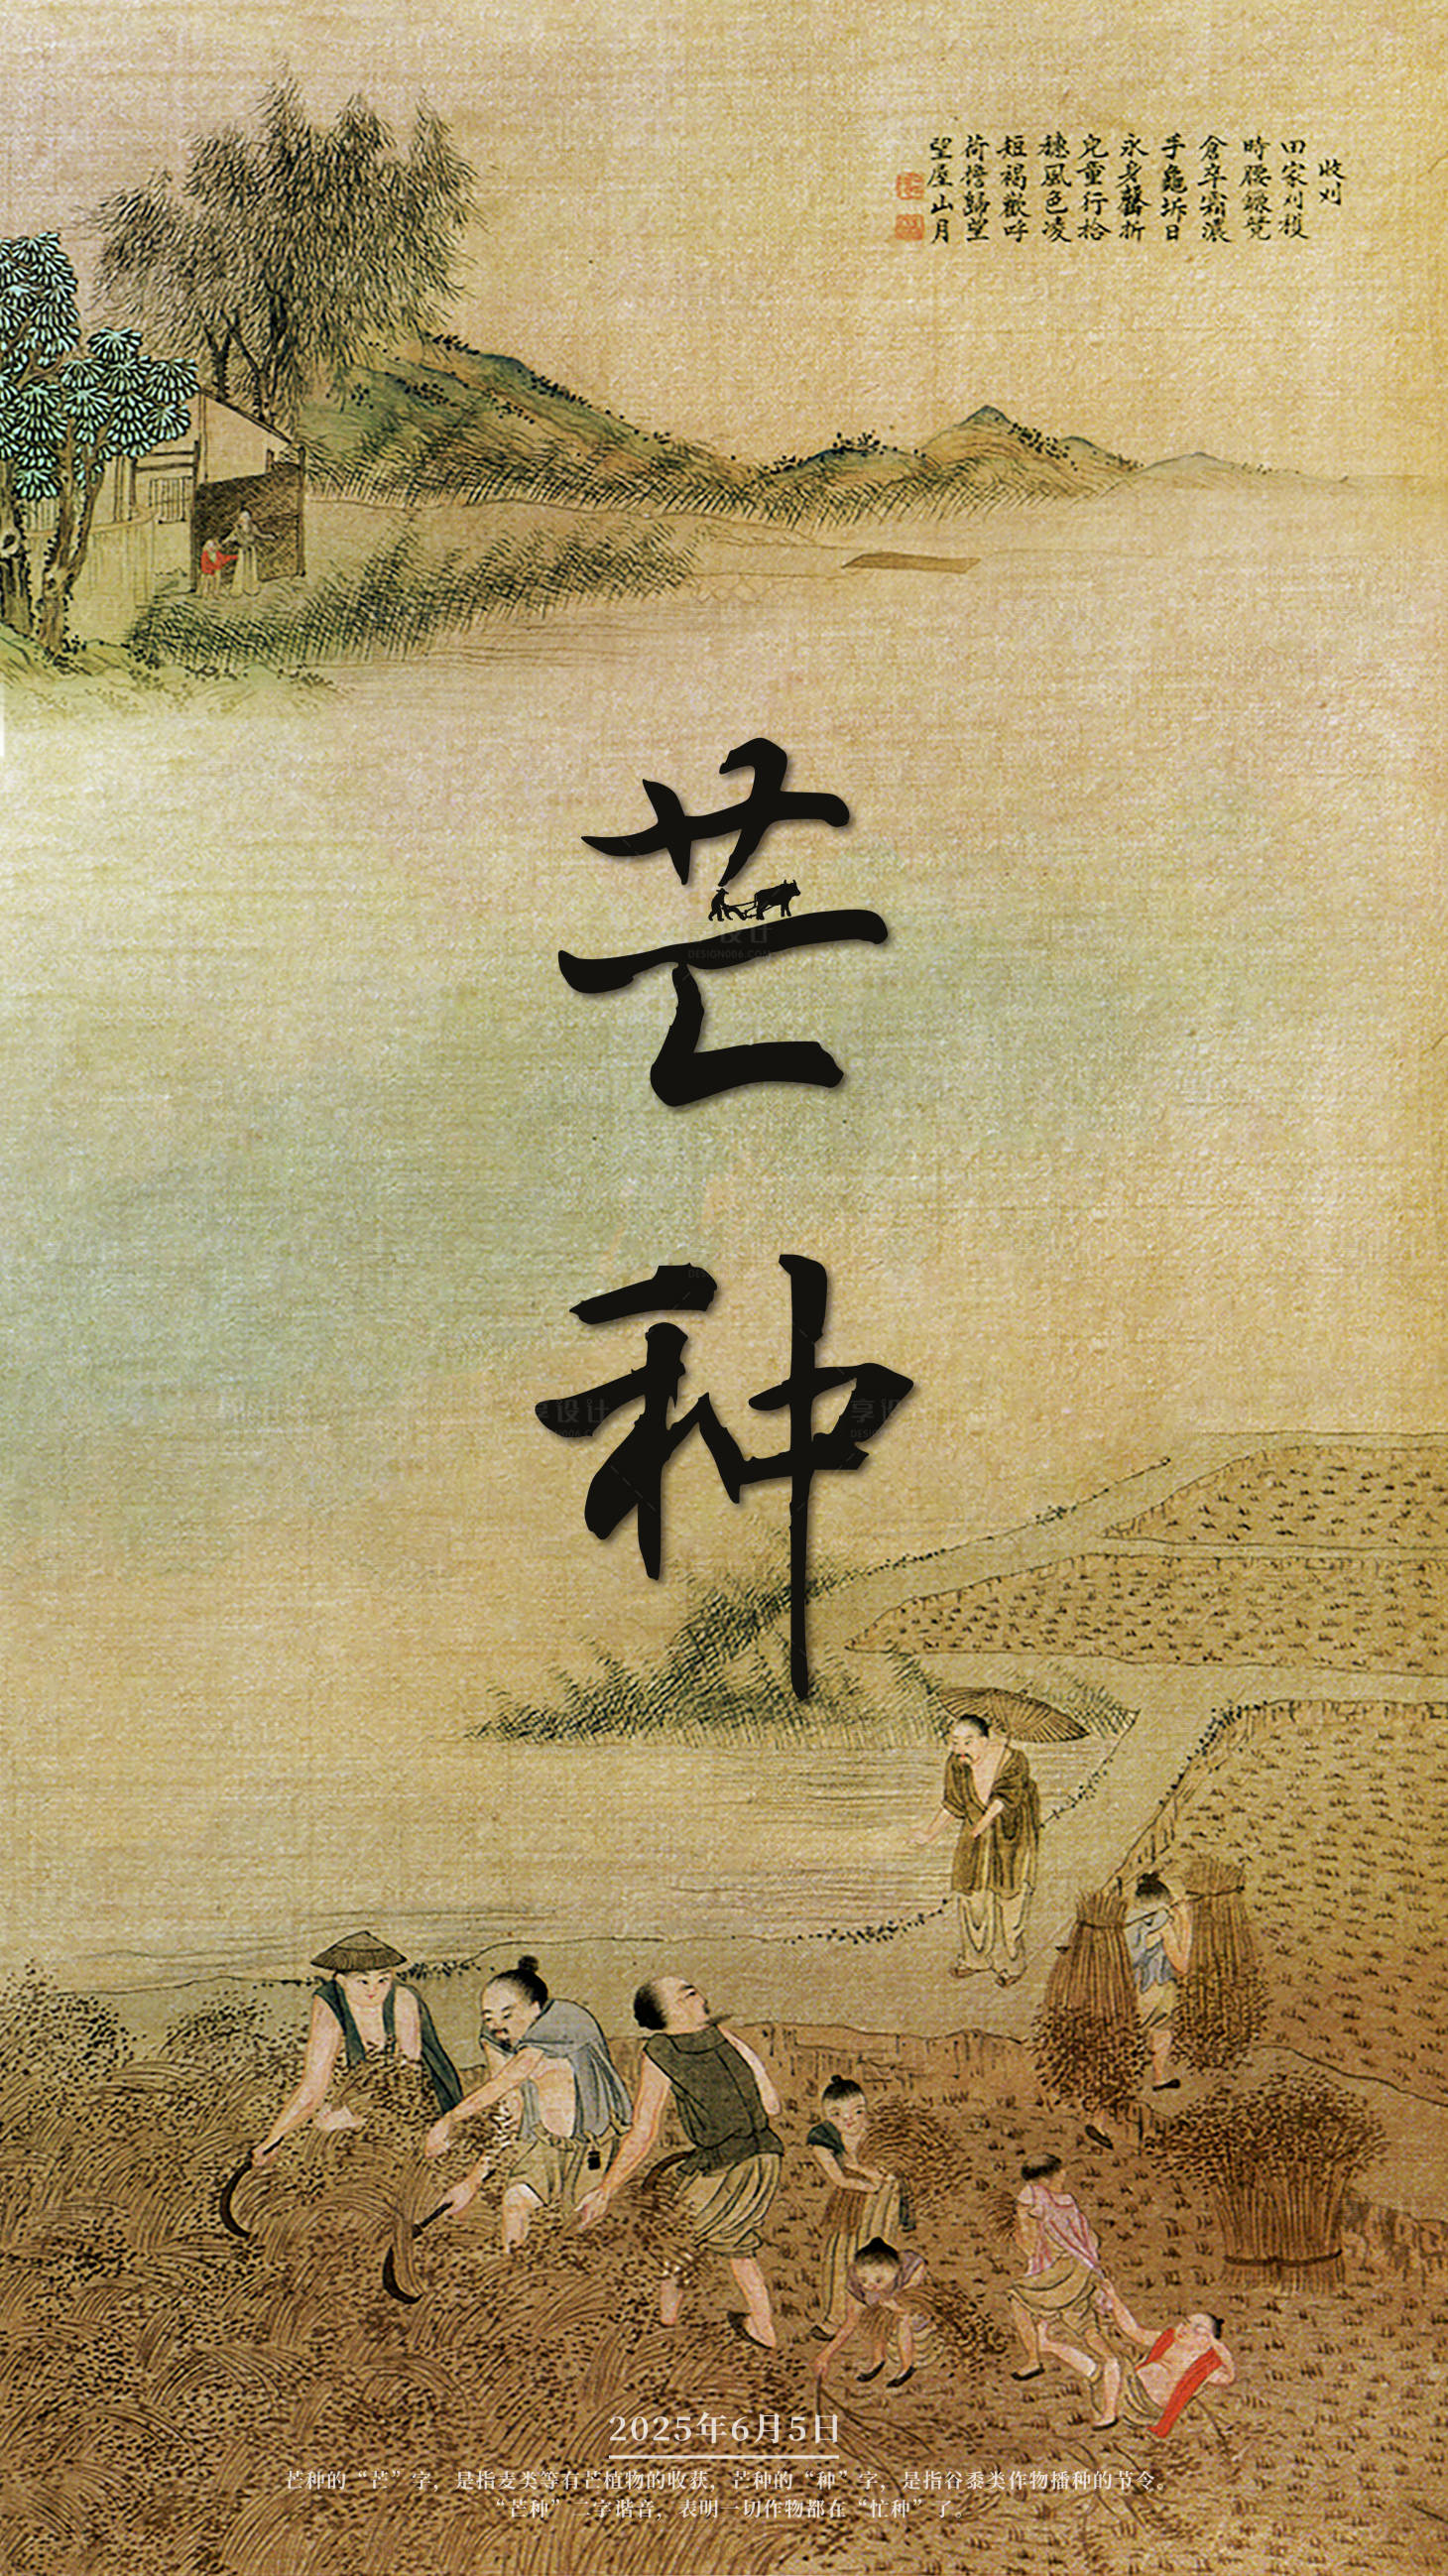 收刈
田家刈穫
時腰鎌競
倉卒霜濃
手龜坼日
永身罄折
兒童行拾
穗風色凌
短褐歡呼
荷擔歸望
望屋山月
芒
种
2025年6月5日
芒种的“芒”字，是指麦类等有芒植物的收获，芒种的“种”字，是指谷黍类作物播种的节令。
“芒种”二字谐音，表明一切作物都在“忙种”了。
享设计
DESIGN006.COM